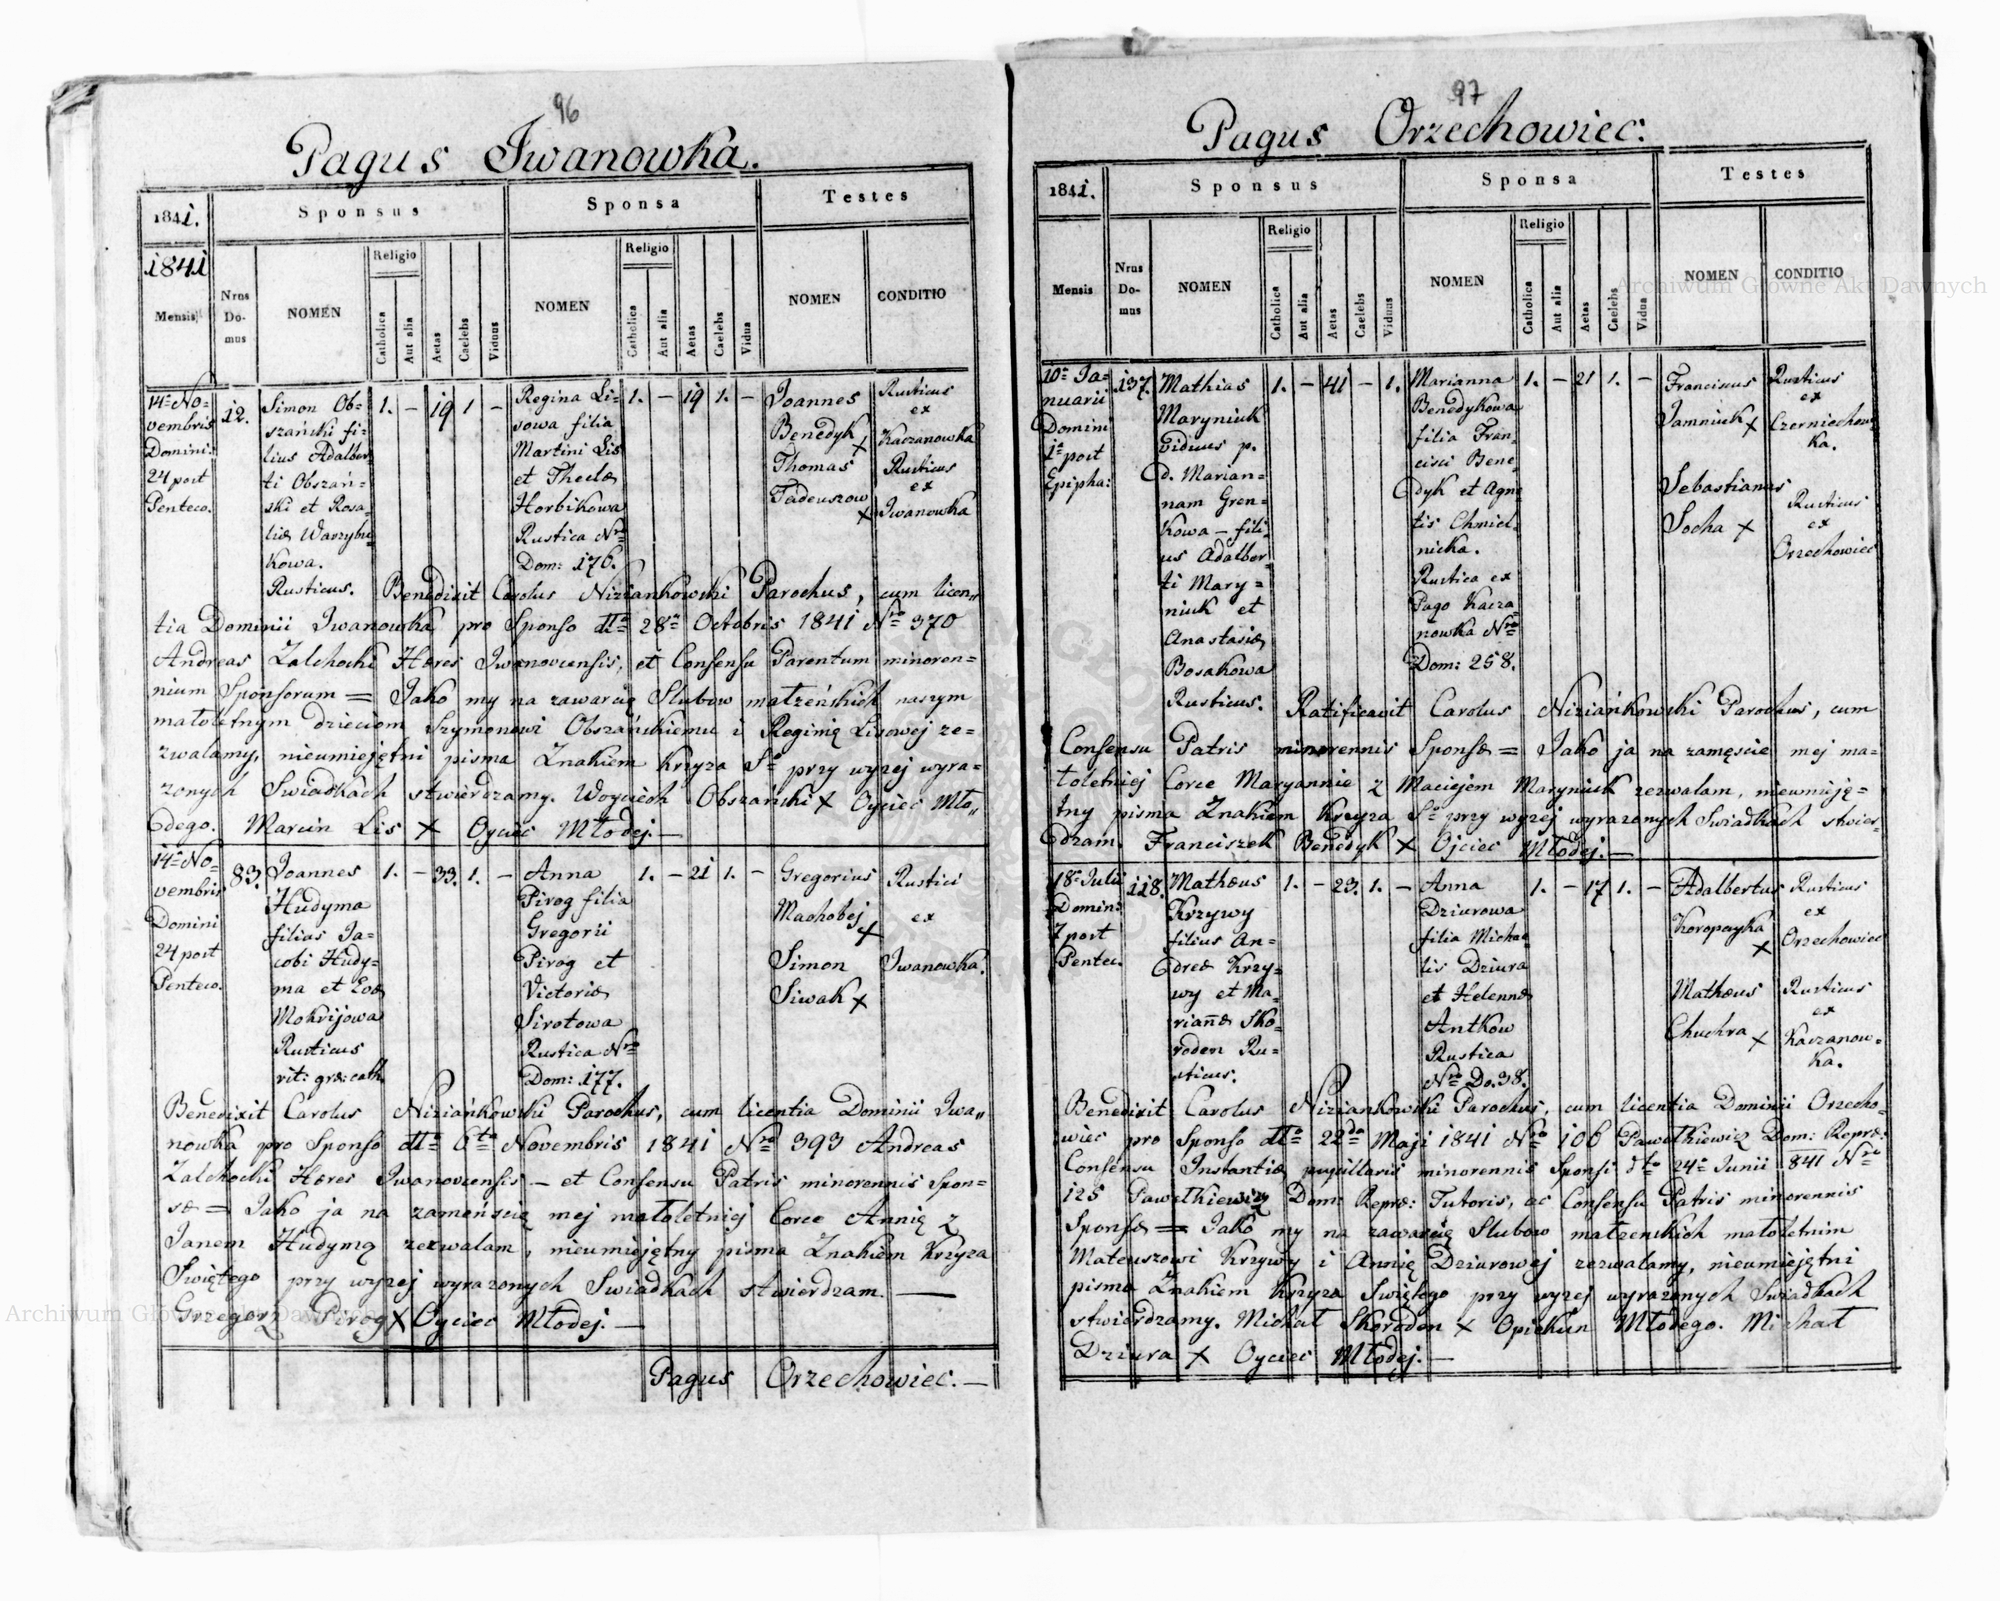 96
Pagus Iwanowka.
1841. Sponsus Sponsa Testes
1841
Mensis
Nrus Do- mus
NOMEN
Religio
Catholica
Aut alia
Aetas
Caelebs
Viduus
NOMEN
Religio
Catholica
Aut alia
Aetas
Caelebs
Vidua
NOMEN
CONDITIO
14ta No-
vembris
Domini:
24 post
Penteco.
12.
Simon Ob-
szański fi-
lius Adalber-
ti Obszań-
ski et Rosa-
liæ Warzybu-
kowa.
Rusticus.
1. - 19 1 -
Regina Li-
sowa filia
Martini Lis
et Theclæ
Horbikowa
Rustica Nro
Dom: 176.
1. - 19 1. -
Joannes
Benedyk
x
Thomas
Tadeuszow
x
Rusticus
ex
Kaczanowka
Rusticus
ex
Iwanowka
Benedixit Carolus Niziankowski Parochus, cum licen„
tia Dominii Iwanowka pro Sponso dto 28va Octobris 1841 Nro 370
Andreas Zalchocki Hæres Iwanovcensis, et Consensu Parentum minoren=
nium Sponsorum = Jako my na zawarcię Slubow małzeńskich naszym
małoletnym dzieciom Szymonowi Obszańskiemu i Reginię Lisowej ze=
zwalamy, nieumiejętni pisma Znakiem krzyza So przy wyzej wyra=
zonych Swiadkach stwierdzamy. Woyciech Obszański x Oyciec Mło„
dego. Marcin Lis x Oyciec Młodej —
14ta No-
vembris
Domini
24 post
Penteco.
83.
Joannes
Hudyma
filias Ja-
cobi Hudy-
ma et Evæ
Mokrijowa
Rusticus
rit: græ: cath.
1. - 33. 1. -
Anna
Pirog filia
Gregorii
Pirog et
Victoriæ
Sirotowa
Rustica Nro
Dom: 177.
1. - 21 1. -
Gregorius
Machobej
x
Simon
Siwak x
Rustici
ex
Iwanowka.
Benedixit Carolus Niziańkowski Parochus, cum licentia Dominii Iwa„
nowka pro Sponso dto 6ta Novembris 1841 Nro 393 Andreas
Zalchocki Hæres Iwanovcensis — et Consensu Patris minorennis Spon=
sæ = Jako ja na zamenście mej małoletniej Corce Annię z
Janem Hudymą zezwalam, nieumiejętny pisma Znakiem Krzyza
Swiętego przy wyzej wyrazonych Swiadkach stwierdzam. —
Grzegorz Pirog x Oyciec Młodej. —
Pagus Orzechowiec. —
97
Pagus Orzechowiec.
1841. Sponsus Sponsa Testes
Mensis
Nrus Do- mus
NOMEN
Religio
Catholica
Aut alia
Aetas
Caelebs
Viduus
NOMEN
Religio
Catholica
Aut alia
Aetas
Caelebs
Vidua
NOMEN
CONDITIO
10a Ja=
nuarii
Domini
1a post
Epipha:
137.
Mathias
Maryniuk
Viduus p.
d. Marian-
nam Gren-
kowa — fili-
us Adalber-
ti Mary=
niuk et
Anastasiæ
Bosakowa
Rusticus.
1. - 41 - 1.
Marianna
Benedykowa
filia Fran-
cisci Bene-
dyk et Agne
tis Chmiel-
nicka.
Rustica ex
Pago Kacza-
nowka Nro
Dom: 258.
1. - 21 1. -
Franciscus
Jamniuk x
Sebastianus
Socha x
Rusticus
ex
Czerniechow-
ka.
Rusticus
ex
Orzechowiec
Ratificavit Carolus Niziańkowski Parochus, cum
Consensu Patris minorennis Sponsæ = Jako ja na zamęscie mej ma=
toletniej Corce Maryannie z Maciejem Maryniuk zezwalam, nieumieję=
tny pisma Znakiem Krzyza So przy wyzej wyrazonych Swiadkach stwier-
dzam. Franciszek Benedyk x Ojciec Młodej. —
18a Julii
Domini:
7 post
Pentec.
118.
Mathæus
Krzywy
filius An-
dreæ Krzy-
wy et Ma-
riannæ Sko-
roden Ru-
sticus.
1. - 23. 1. -
Anna
Dziurowa
filia Michae
lis Dziura
et Helennæ
Antkow
Rustica
Nro Do. 38.
1. - 17 1. -
Adalbertus
x
Mathæus
Chuchra x
Rusticus
ex
Orzechowiec
Rusticus
ex
Kaczanow-
ka.
Benedixit Carolus Niziankowski Parochus, cum licentia Dominii Orzecho-
wiec pro Sponso dto 22da Maji 1841 Nro 106 Pawełkiewicz Dom: Repræ:
Consensu Instantiæ pupillaris minorennis Sponsi dto 24ta Junii 841 Nro
125 Pawełkiewicz Dom: Repræ: Tutoris, ac Consensu Patris minorennis
Sponsæ = Jako my na zawarcię Slubow małzenskich małoletnim
Mateuszowi Krzywy i Annię Dziurowej zezwalamy, nieumiejętni
pisma Znakiem Krzyza Swiętego przy wyzej wyrazonych Swiadkach
stwierdzamy. Michał Skoroden x Opiekun Młodego. Michał
Dziura x Oyciec Młodej. —
Archiwum Główne Akt Dawnych
Archiwum Główne Akt Dawnych